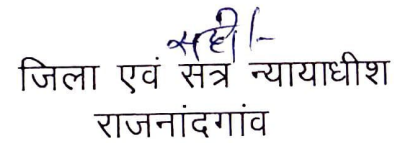 सही/-
जिला एवं सत्र न्यायाधीश
राजनांदगांव